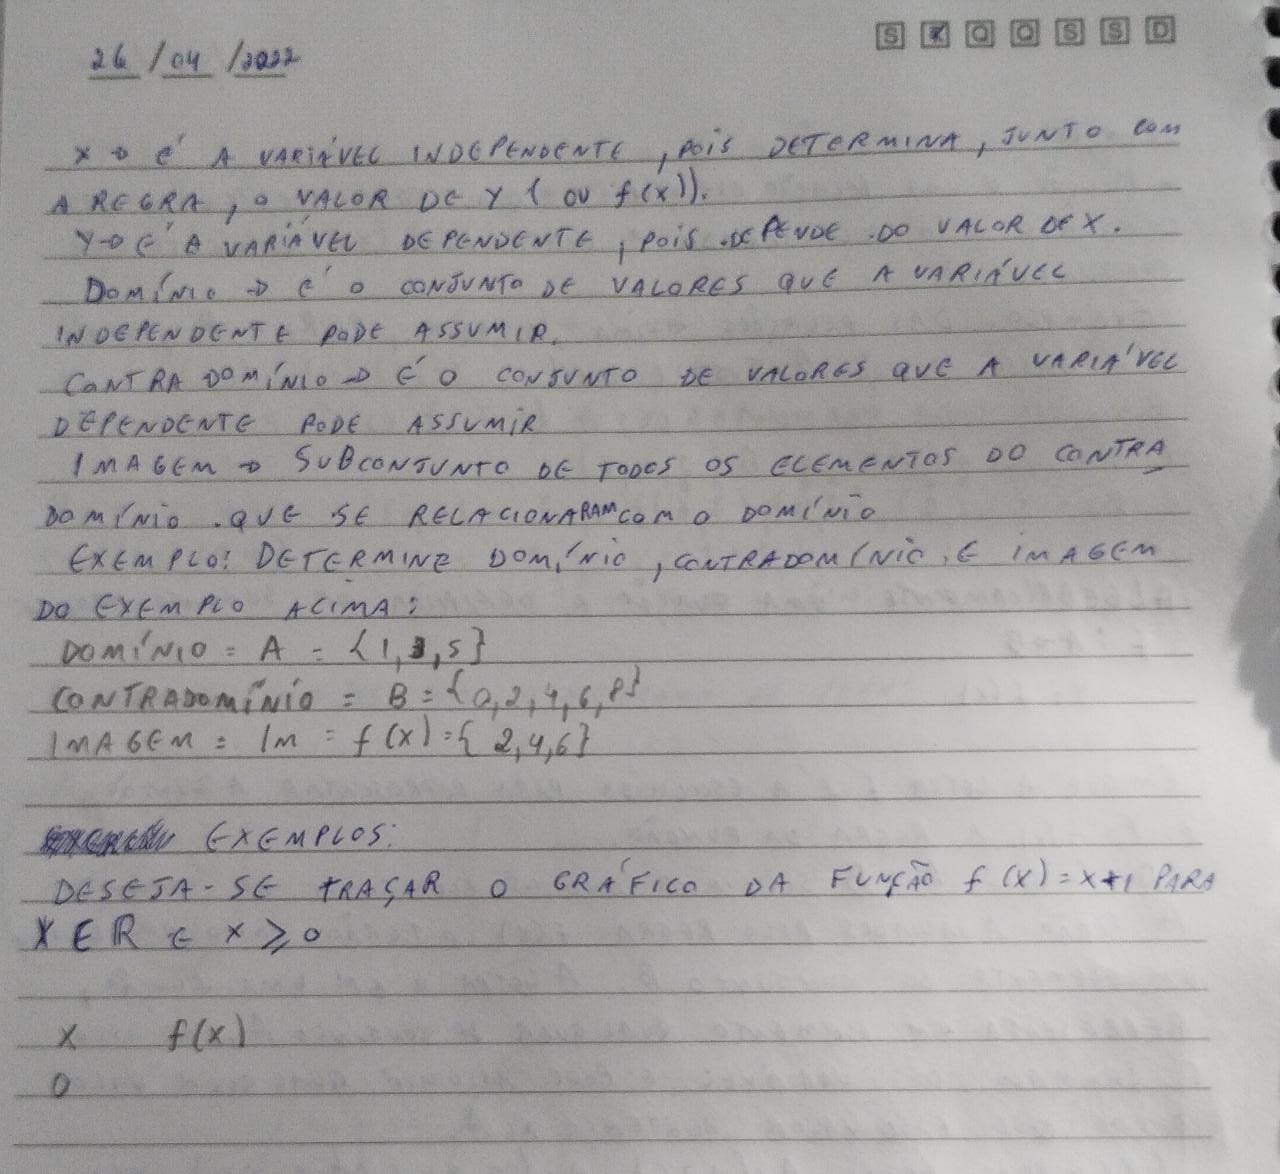 S T Q Q S S D
26/04/2022
X → É A VARIÁVEL INDEPENDENTE, POIS DETERMINA, JUNTO COM
A REGRA, O VALOR DE Y (OU f(x)).
Y → É A VARIÁVEL DEPENDENTE, POIS DEPENDE DO VALOR DE X.
DOMÍNIO → É O CONJUNTO DE VALORES QUE A VARIÁVEL
INDEPENDENTE PODE ASSUMIR.
CONTRA DOMÍNIO → É O CONJUNTO DE VALORES QUE A VARIÁVEL
DEPENDENTE PODE ASSUMIR
IMAGEM → SUBCONJUNTO DE TODOS OS ELEMENTOS DO CONTRA
DOMÍNIO QUE SE RELACIONARAM COM O DOMÍNIO
EXEMPLO: DETERMINE DOMÍNIO, CONTRADOMÍNIO, E IMAGEM
DO EXEMPLO ACIMA:
DOMÍNIO = A = {1,3,5}
CONTRADOMÍNIO = B = {0,2,4,6,8}
IMAGEM = Im = f(x) = {2,4,6}
EXEMPLOS:
DESEJA-SE TRAÇAR O GRÁFICO DA FUNÇÃO f(x)=x+1 PARA
X ∈ R E X ≥ 0
X f(x)
0